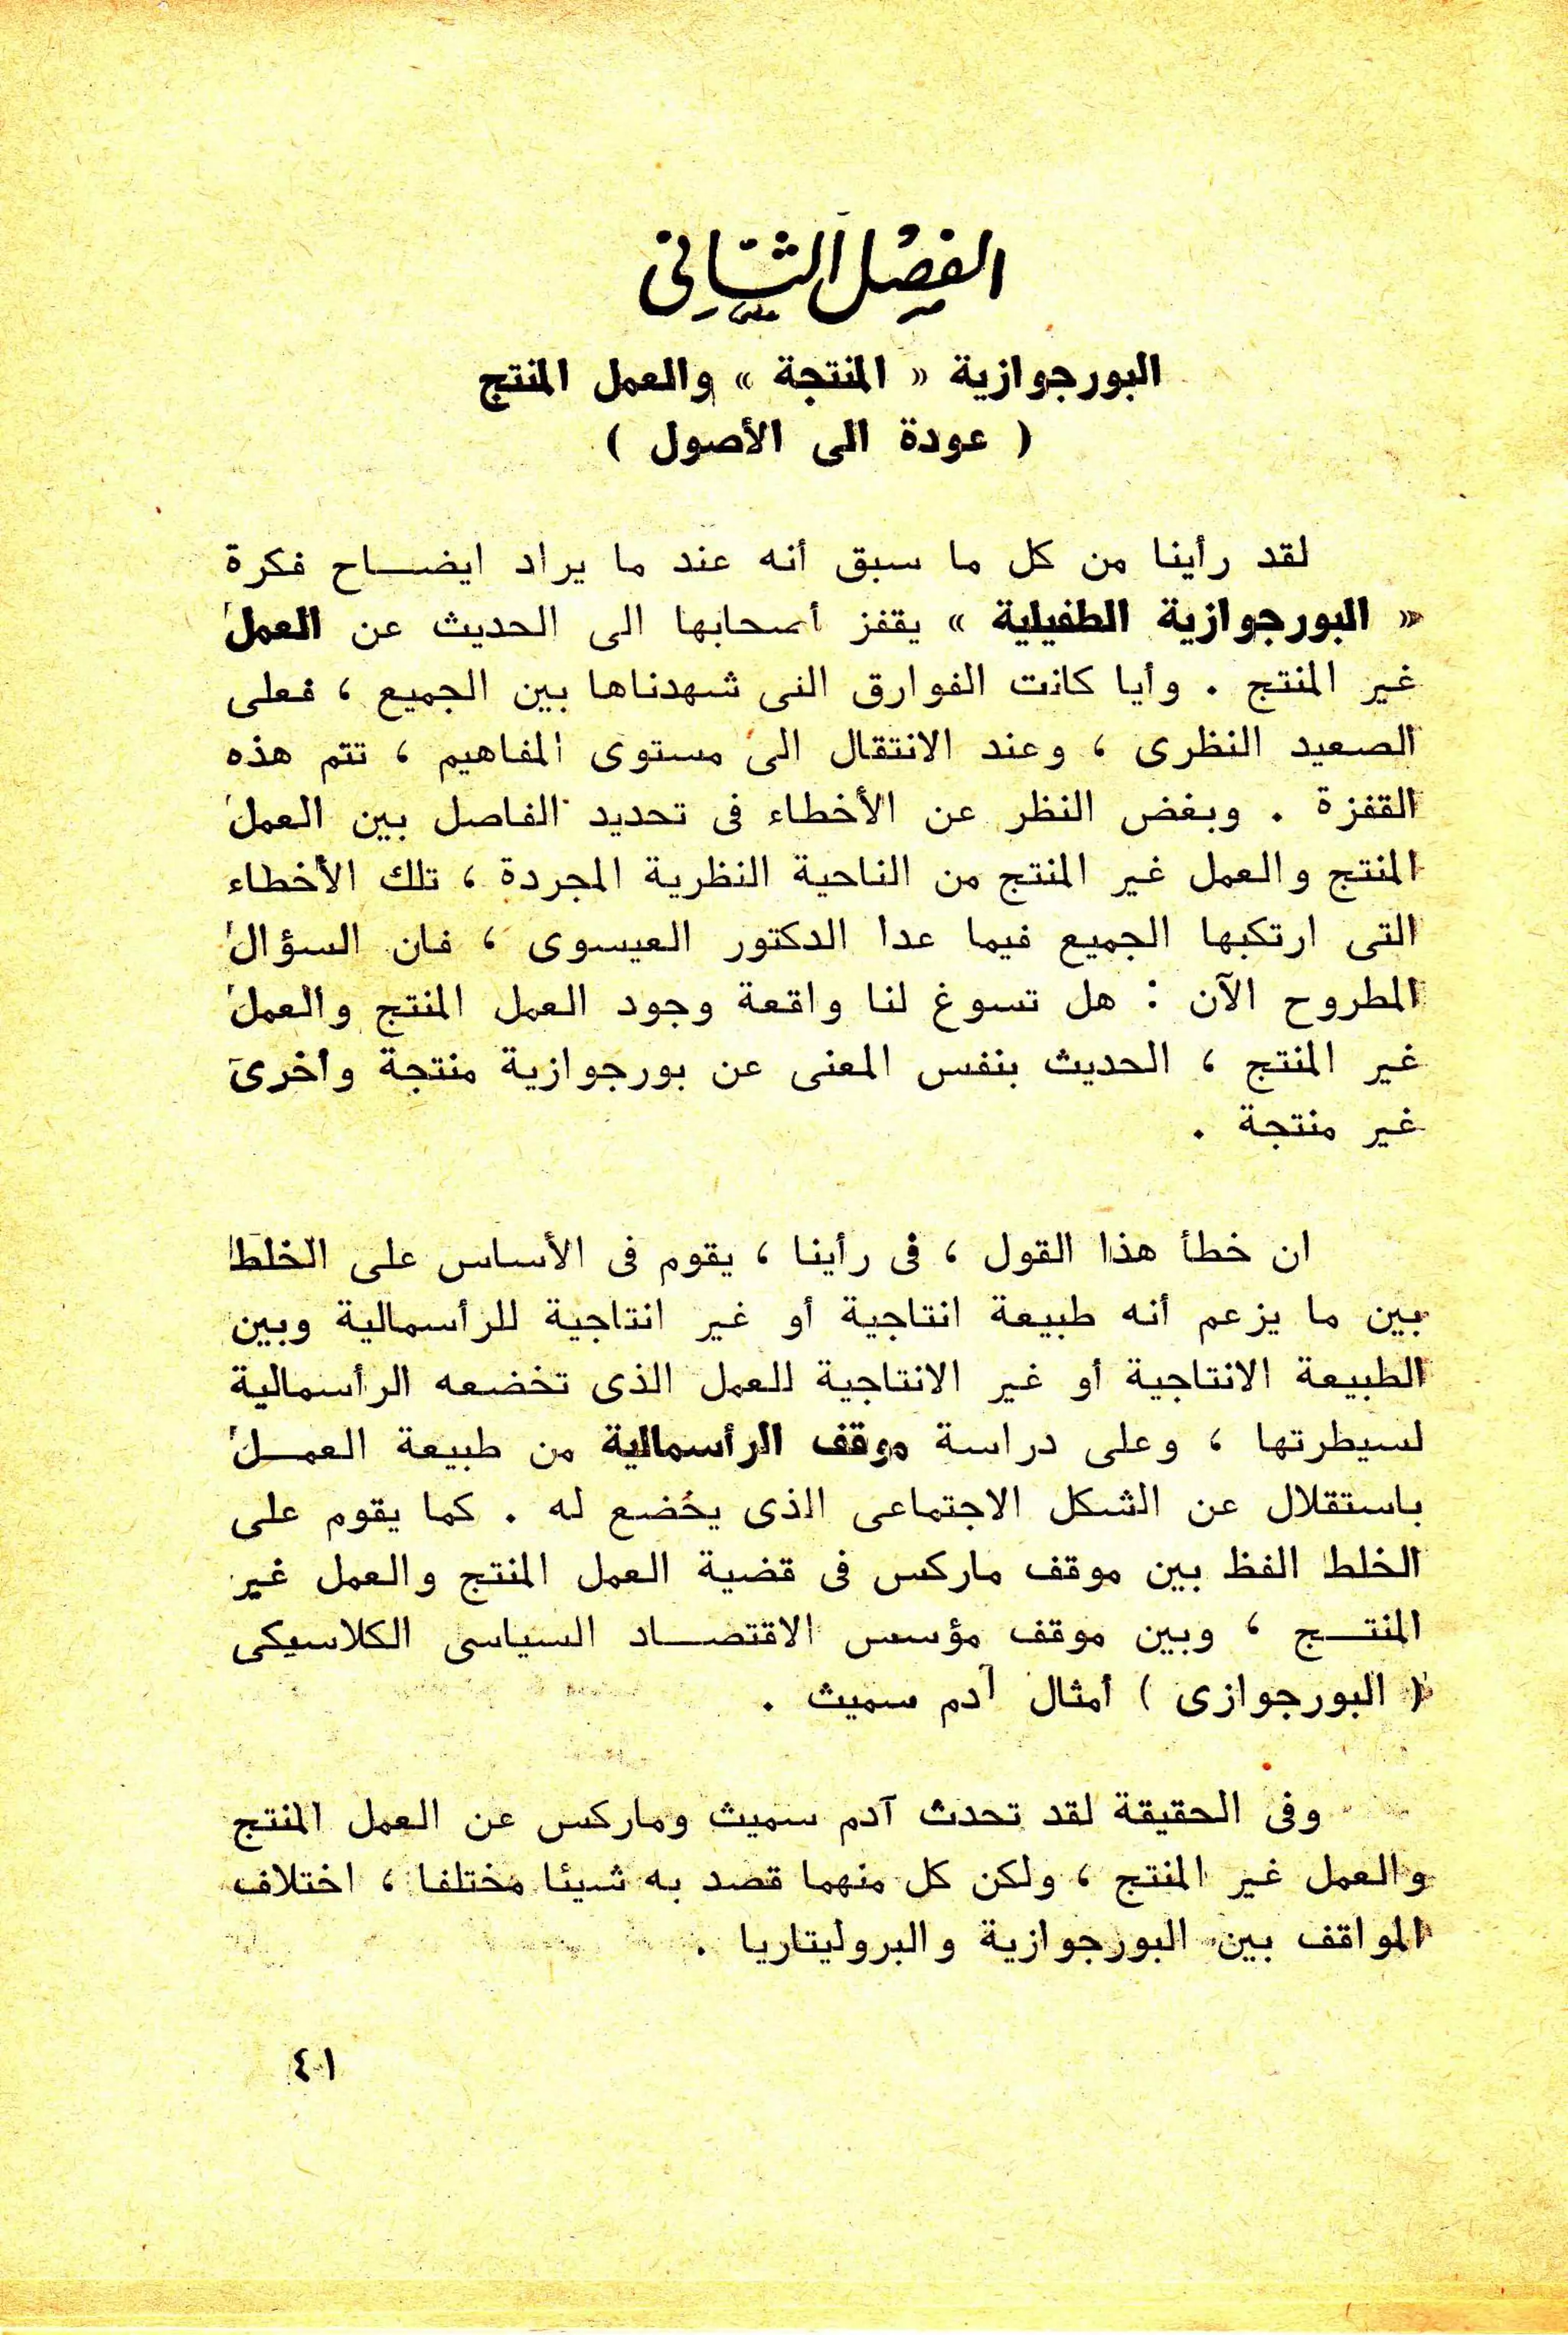 الفصل الثاني
البورجوازية « المنتجة » والعمل المنتج
( عودة الى الأصول )
لقد رأينا من كل ما سبق أنه عند ما يراد ايضاح فكرة
« البورجوازية الطفيلية » يقفز أصحابها الى الحديث عن العمل
غير المنتج . وأيا كانت الفوارق التى شهدناها بين الجميع ، فعلى
الصعيد النظرى ، وعند الانتقال الى مستوى المفاهيم ، تتم هذه
القفزة . وبغض النظر عن الأخطاء فى تحديد الفاصل بين العمل
المنتج والعمل غير المنتج من الناحية النظرية المجردة ، تلك الأخطاء
التى ارتكبها الجميع فيما عدا الدكتور العيسوى ، فان السؤال
المطروح الآن : هل تسوغ لنا واقعة وجود العمل المنتج والعمل
غير المنتج ، الحديث بنفس المعنى عن بورجوازية منتجة وأخرى
غير منتجة .
ان خطأ هذا القول ، فى رأينا ، يقوم فى الأساس على الخلط
بين ما يزعم أنه طبيعة انتاجية أو غير انتاجية للرأسمالية وبين
الطبيعة الانتاجية أو غير الانتاجية للعمل الذى تخضعه الرأسمالية
لسيطرتها ، وعلى دراسة موقف الرأسمالية من طبيعة العمل
باستقلال عن الشكل الاجتماعى الذى يخضع له . كما يقوم على
الخلط الفظ بين موقف ماركس فى قضية العمل المنتج والعمل غير
المنتج ، وبين موقف مؤسس الاقتصاد السياسى الكلاسيكى
( البورجوازى ) أمثال آدم سميث .
وفى الحقيقة لقد تحدث آدم سميث وماركس عن العمل المنتج
والعمل غير المنتج ، ولكن كل منهما قصد به شيئا مختلفا ، اختلاف
المواقف بين البورجوازية والبروليتاريا .
٤١